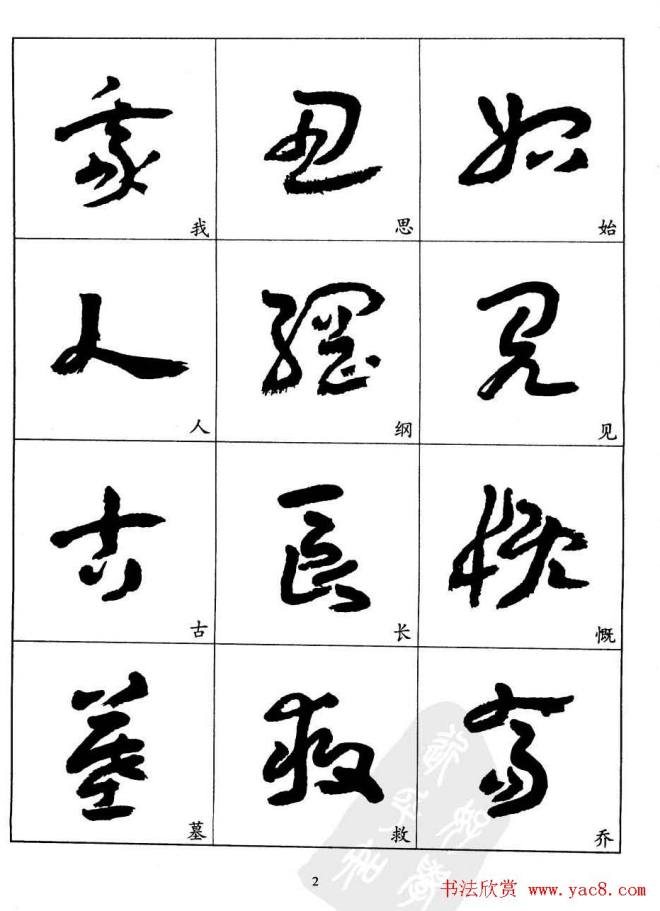 我 思 始
人 纲 见
古 长 慨
墓 救 乔
2
书法欣赏 www.yac8.com